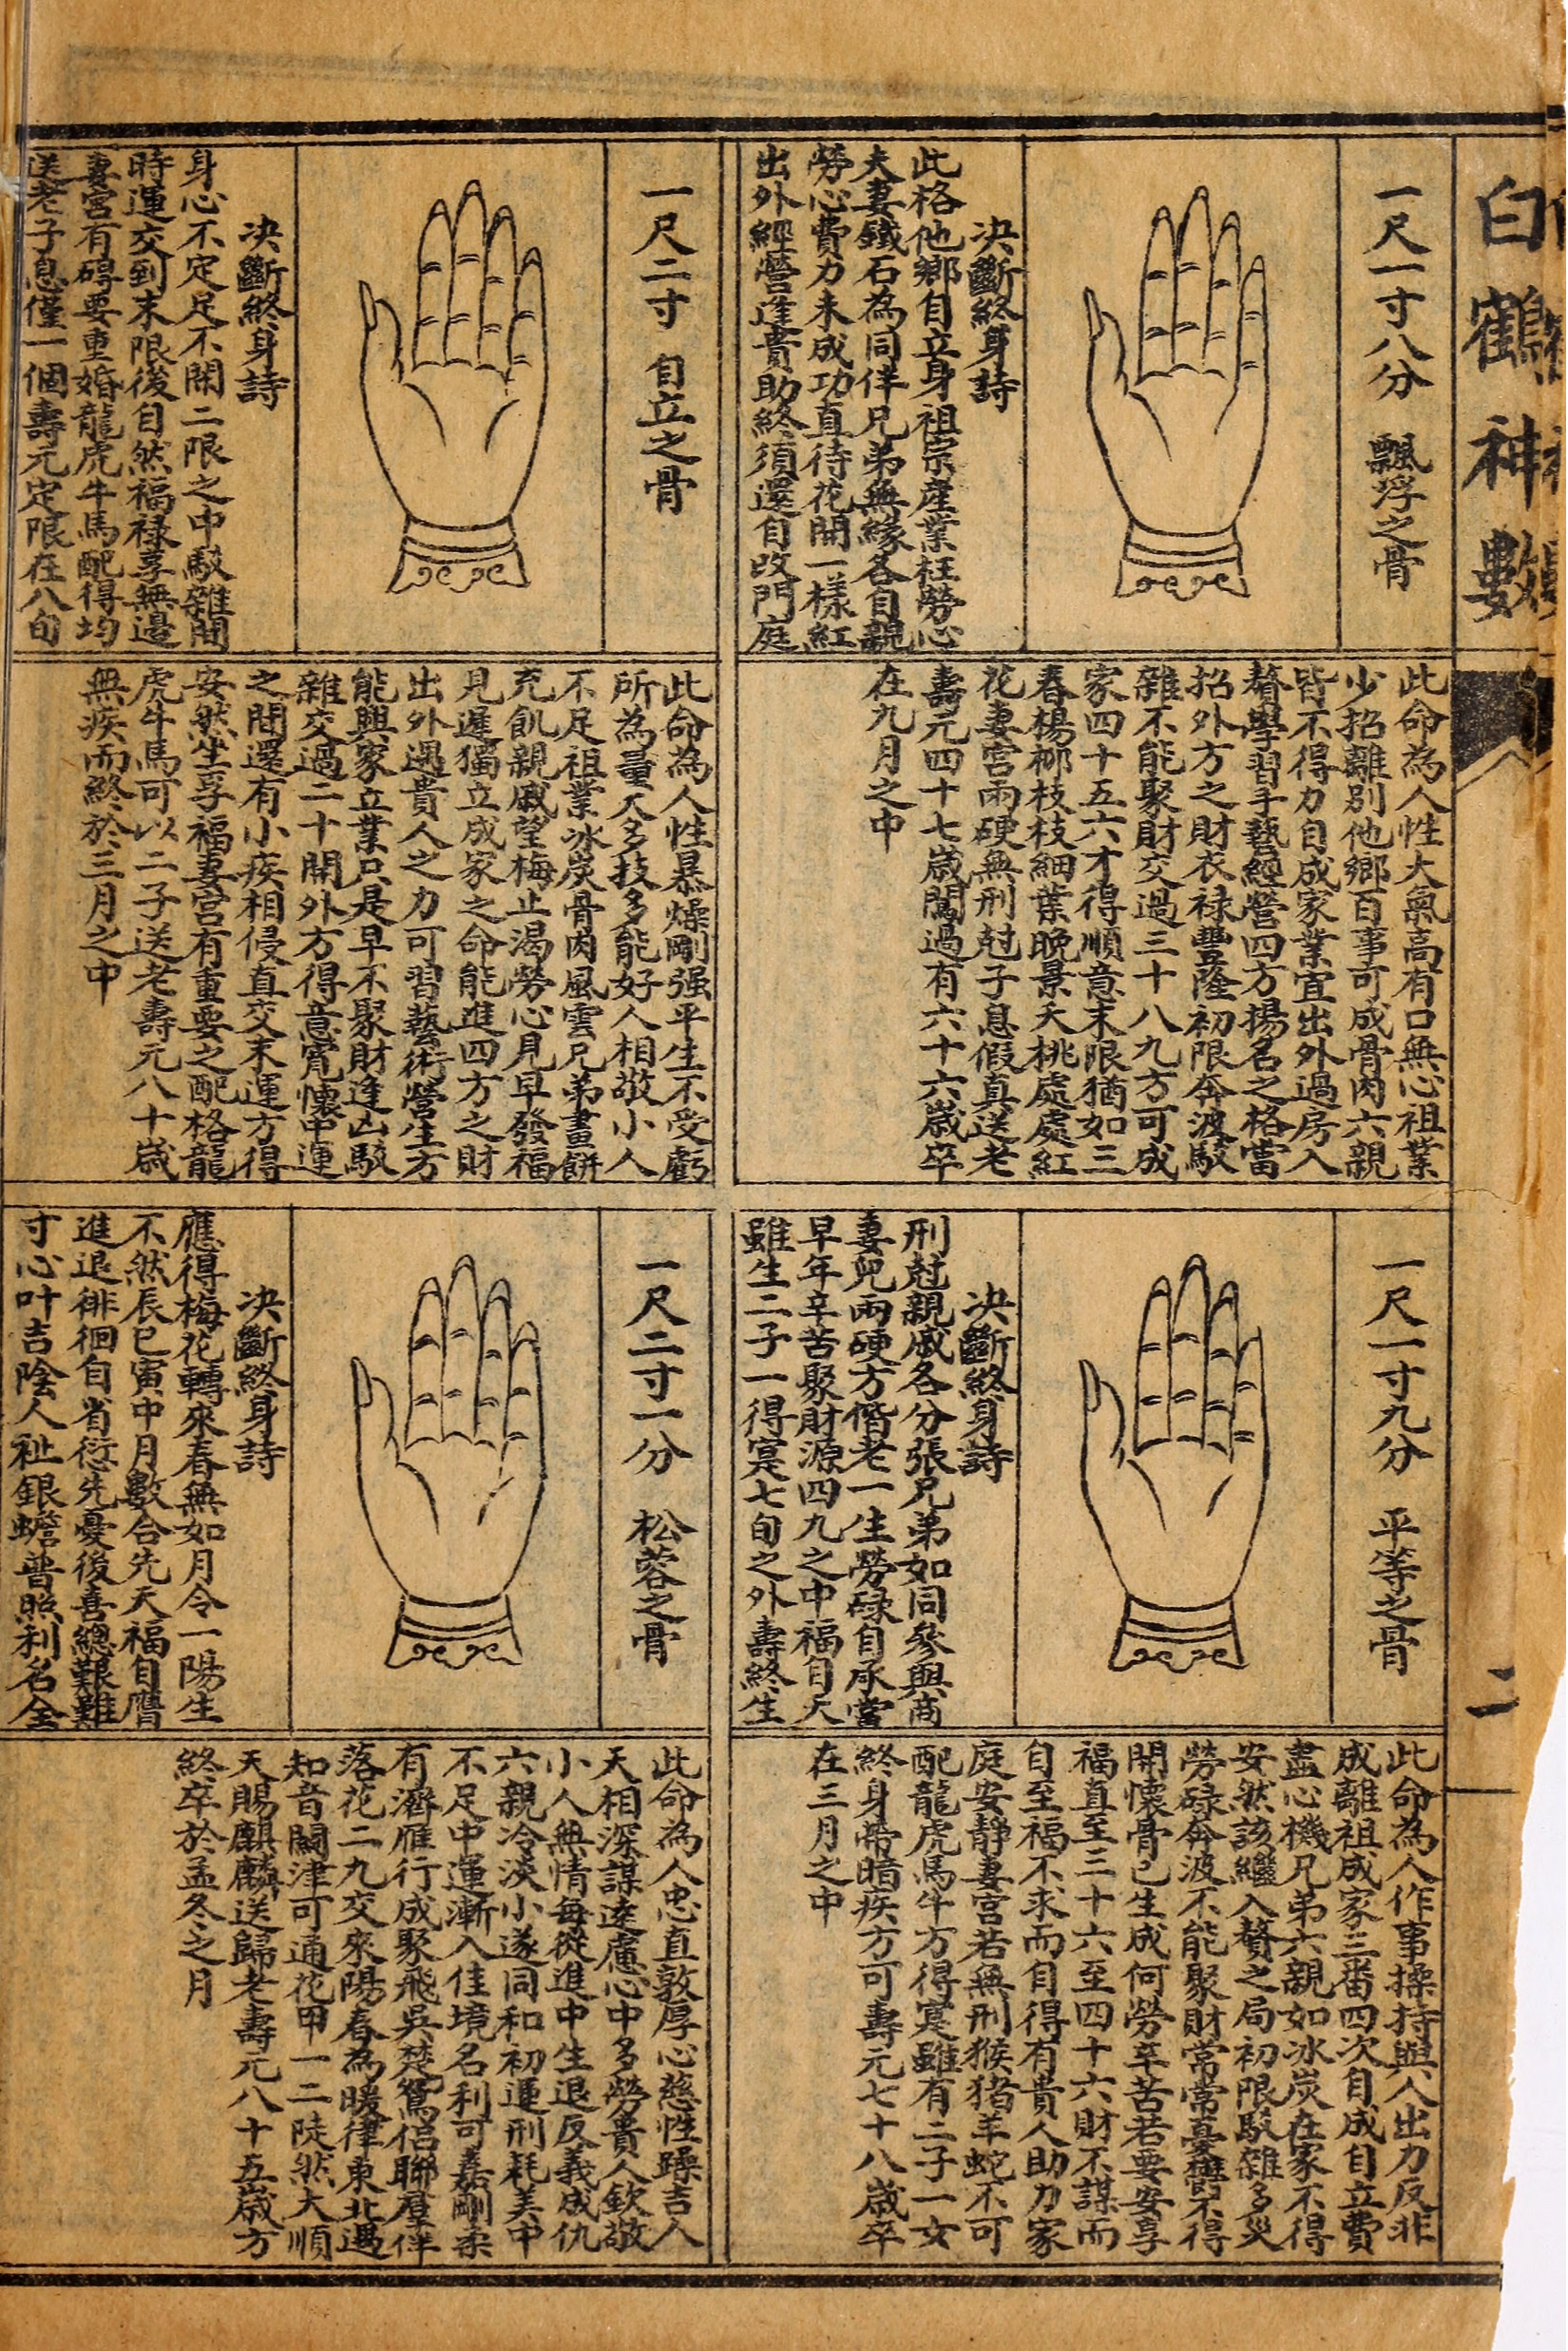 白鶴神數
二
一尺一寸八分 飄浮之骨
決斷終身詩
此格他鄉自立身祖宗產業枉勞心
夫妻鐵石為同伴兄弟無緣各自親
勞心費力未成功直待花開一樣紅
出外經營逢貴助終須還自改門庭
此命為人性大氣高有口無心祖業
少招離別他鄉百事可成骨肉六親
皆不得力自成家業宜出外過房入
贅學習手藝經營四方揚名之格當
招外方之財衣禄豐隆初限奔波駁
雜不能聚財交過三十八九方可成
家四十五六才得順意末限猶如三
春楊柳枝枝細葉晚景夭桃處處紅
花妻宮兩硬無刑尅子息假真送老
壽元四十七歲闖過有六十六歲卒
在九月之中
一尺二寸 自立之骨
決斷終身詩
身心不定足不閑二限之中駁雜間
時運交到末限後自然福禄享無邊
妻宮有碍要重婚龍虎牛馬配得均
送老子息僅一個壽元定限在八旬
此命為人性暴燥剛强平生不受虧
所為量大多技多能好人相敬小人
不足祖業冰炭骨肉風雲兄弟畫餅
充飢親戚望梅止渴勞心見早發福
見遲獨立成家之命能進四方之財
出外遇貴人之力可習藝術營生方
能興家立業只是早不聚財逢凶駁
雜交過二十開外方得意寬懷中運
之間還有小疾相侵直交末運方得
安然生享福妻宮有重娶之配格龍
虎牛馬可以二子送老壽元八十歲
無疾而終於三月之中
一尺一寸九分 平等之骨
決斷終身詩
刑尅親戚各分張兄弟如同參與商
妻兒兩硬方偕老一生勞碌自承當
早年辛苦聚財源四九之中福自天
雖生二子一得寔七旬之外壽終生
此命為人作事操持與人出力反非
成離祖成家三番四次自成自立費
盡心機兄弟六親如冰炭在家不得
安然該繼入贅之局初限駁雜多災
勞碌奔波不能聚財常常憂鬱不得
開懷骨已生成何勞辛苦若要安享
福直至三十六至四十六財不謀而
自至福不求而自得有貴人助力家
庭安靜妻宮若無刑猴猪羊蛇不可
配龍虎馬牛方得寔雖有二子一女
終身帶暗疾方可壽元七十八歲卒
在三月之中
一尺二寸一分 松蓉之骨
決斷終身詩
應得梅花轉來春無如月令一陽生
不然辰巳寅中月數合先天福自膺
進退徘徊自省愆先憂後喜總艱難
寸心叶吉陰人祉銀蟾普照利名全
此命為人忠直敦厚心慈性躁吉人
天相深謀遠慮心中多勞貴人欽敬
小人無情每從進中生退反義成仇
六親冷淡小遂同和初運刑耗美中
不足中運漸入佳境名利可嘉剛柔
有濟雁行成聚飛吳楚鴛侶聯羣伴
落花二九交來陽春為暖律東北遇
知音關津可通花甲一二陡然大順
天賜麒麟送歸老壽元八十五歲方
終卒於孟冬之月